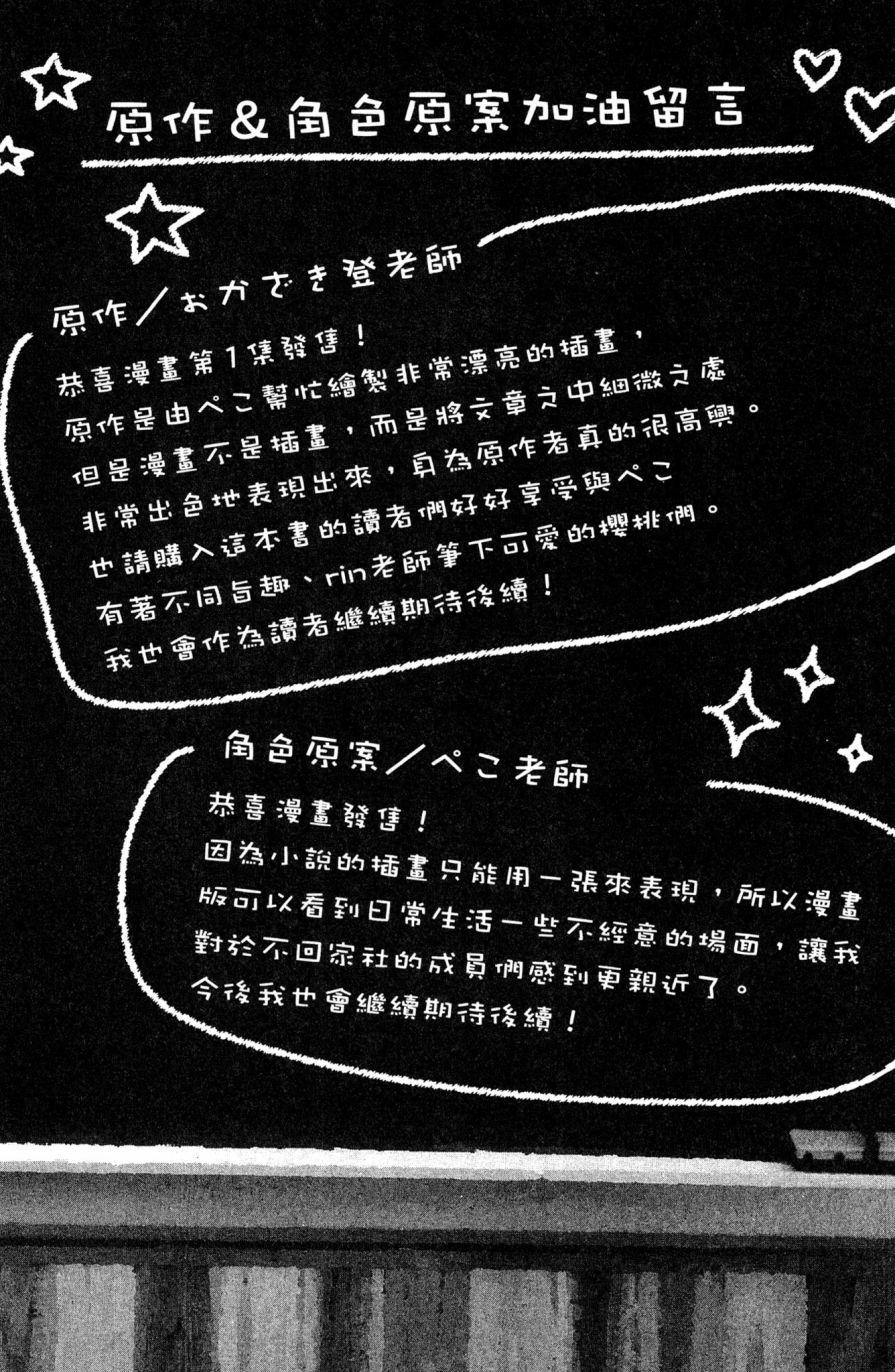 原作＆角色原案加油留言
原作／おかざき登老師
恭喜漫畫第1集發售！
原作是由ぺこ幫忙繪製非常漂亮的插畫，
但是漫畫不是插畫，而是將文章之中細微之處
非常出色地表現出來，身為原作者真的很高興。
也請購入這本書的讀者們好好享受與ぺこ
有著不同旨趣、rin老師筆下可愛的櫻桃們。
我也會作為讀者繼續期待後續！
角色原案／ぺこ老師
恭喜漫畫發售！
因為小說的插畫只能用一張來表現，所以漫畫
版可以看到日常生活一些不經意的場面，讓我
對於不回家社的成員們感到更親近了。
今後我也會繼續期待後續！